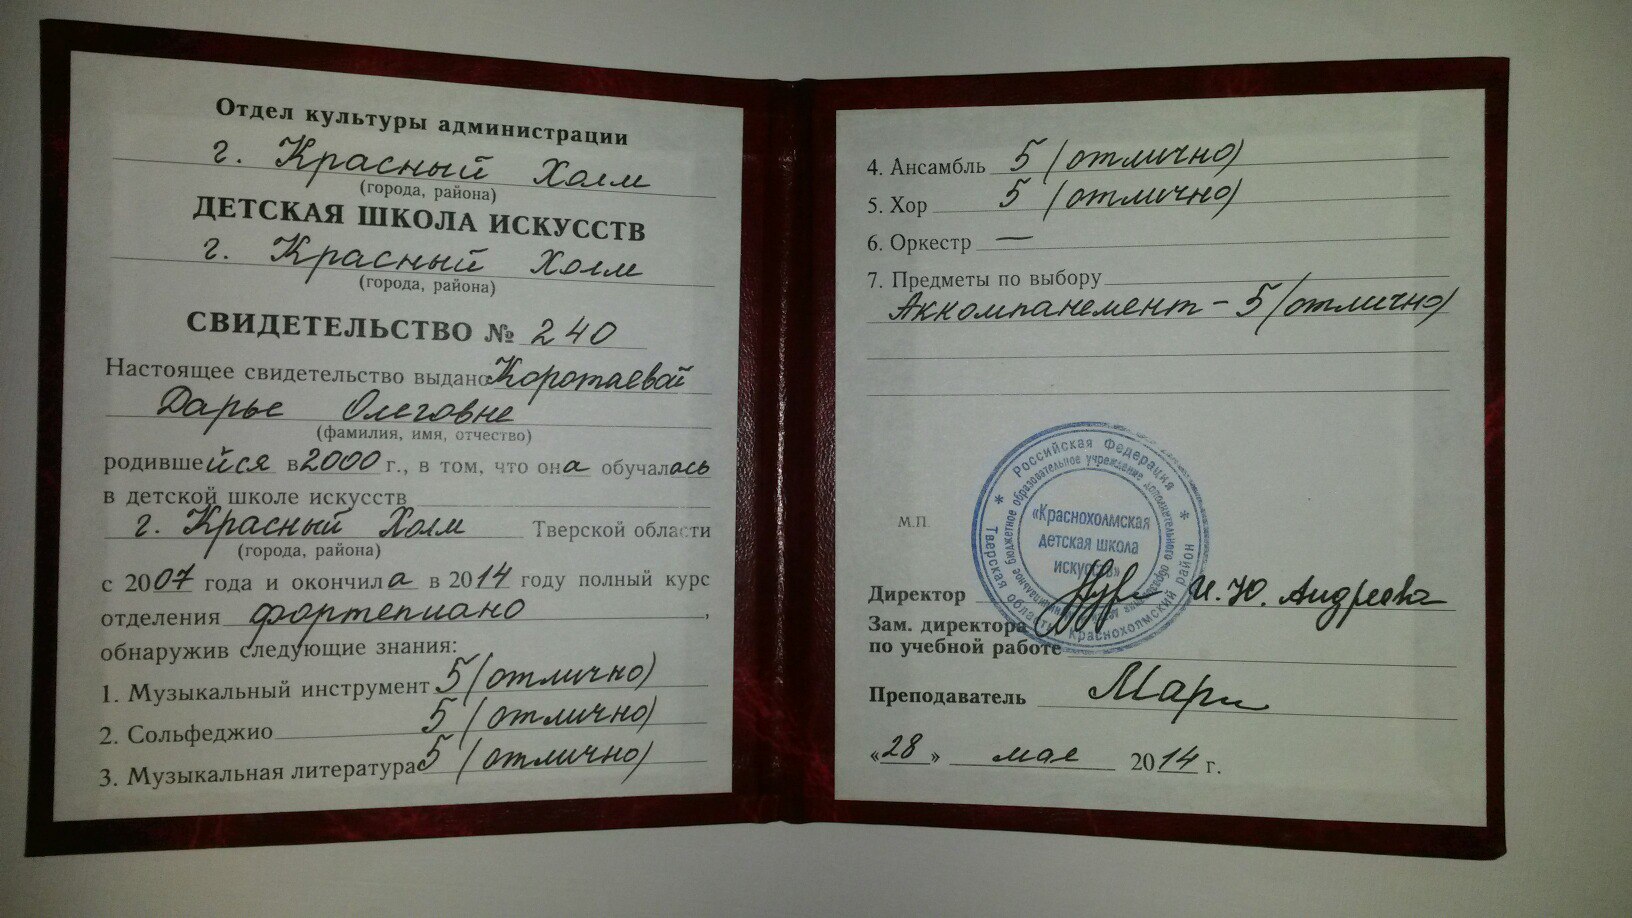 Отдел культуры администрации
г. Красный Холм
(города, района)
ДЕТСКАЯ ШКОЛА ИСКУССТВ
г. Красный Холм
(города, района)
СВИДЕТЕЛЬСТВО № 240
Настоящее свидетельство выдано Коротаевой
Дарье Олеговне
(фамилия, имя, отчество)
родившейся в 2000 г., в том, что она обучалась
в детской школе искусств
г. Красный Холм Тверской области
(города, района)
с 2007 года и окончила в 2014 году полный курс
отделения фортепиано,
обнаружив следующие знания:
1. Музыкальный инструмент 5 (отлично)
2. Сольфеджио 5 (отлично)
3. Музыкальная литература 5 (отлично)
4. Ансамбль 5 (отлично)
5. Хор 5 (отлично)
6. Оркестр —
7. Предметы по выбору
Аккомпанемент - 5 (отлично)
* Российская Федерация *
Тверская область Краснохолмский район
бюджетное образовательное учреждение дополнительного
«Краснохолмская
детская школа
искусств»
М.П.
Директор И.Ю. Андреева
Зам. директора
по учебной работе
Преподаватель
«28» мая 2014 г.